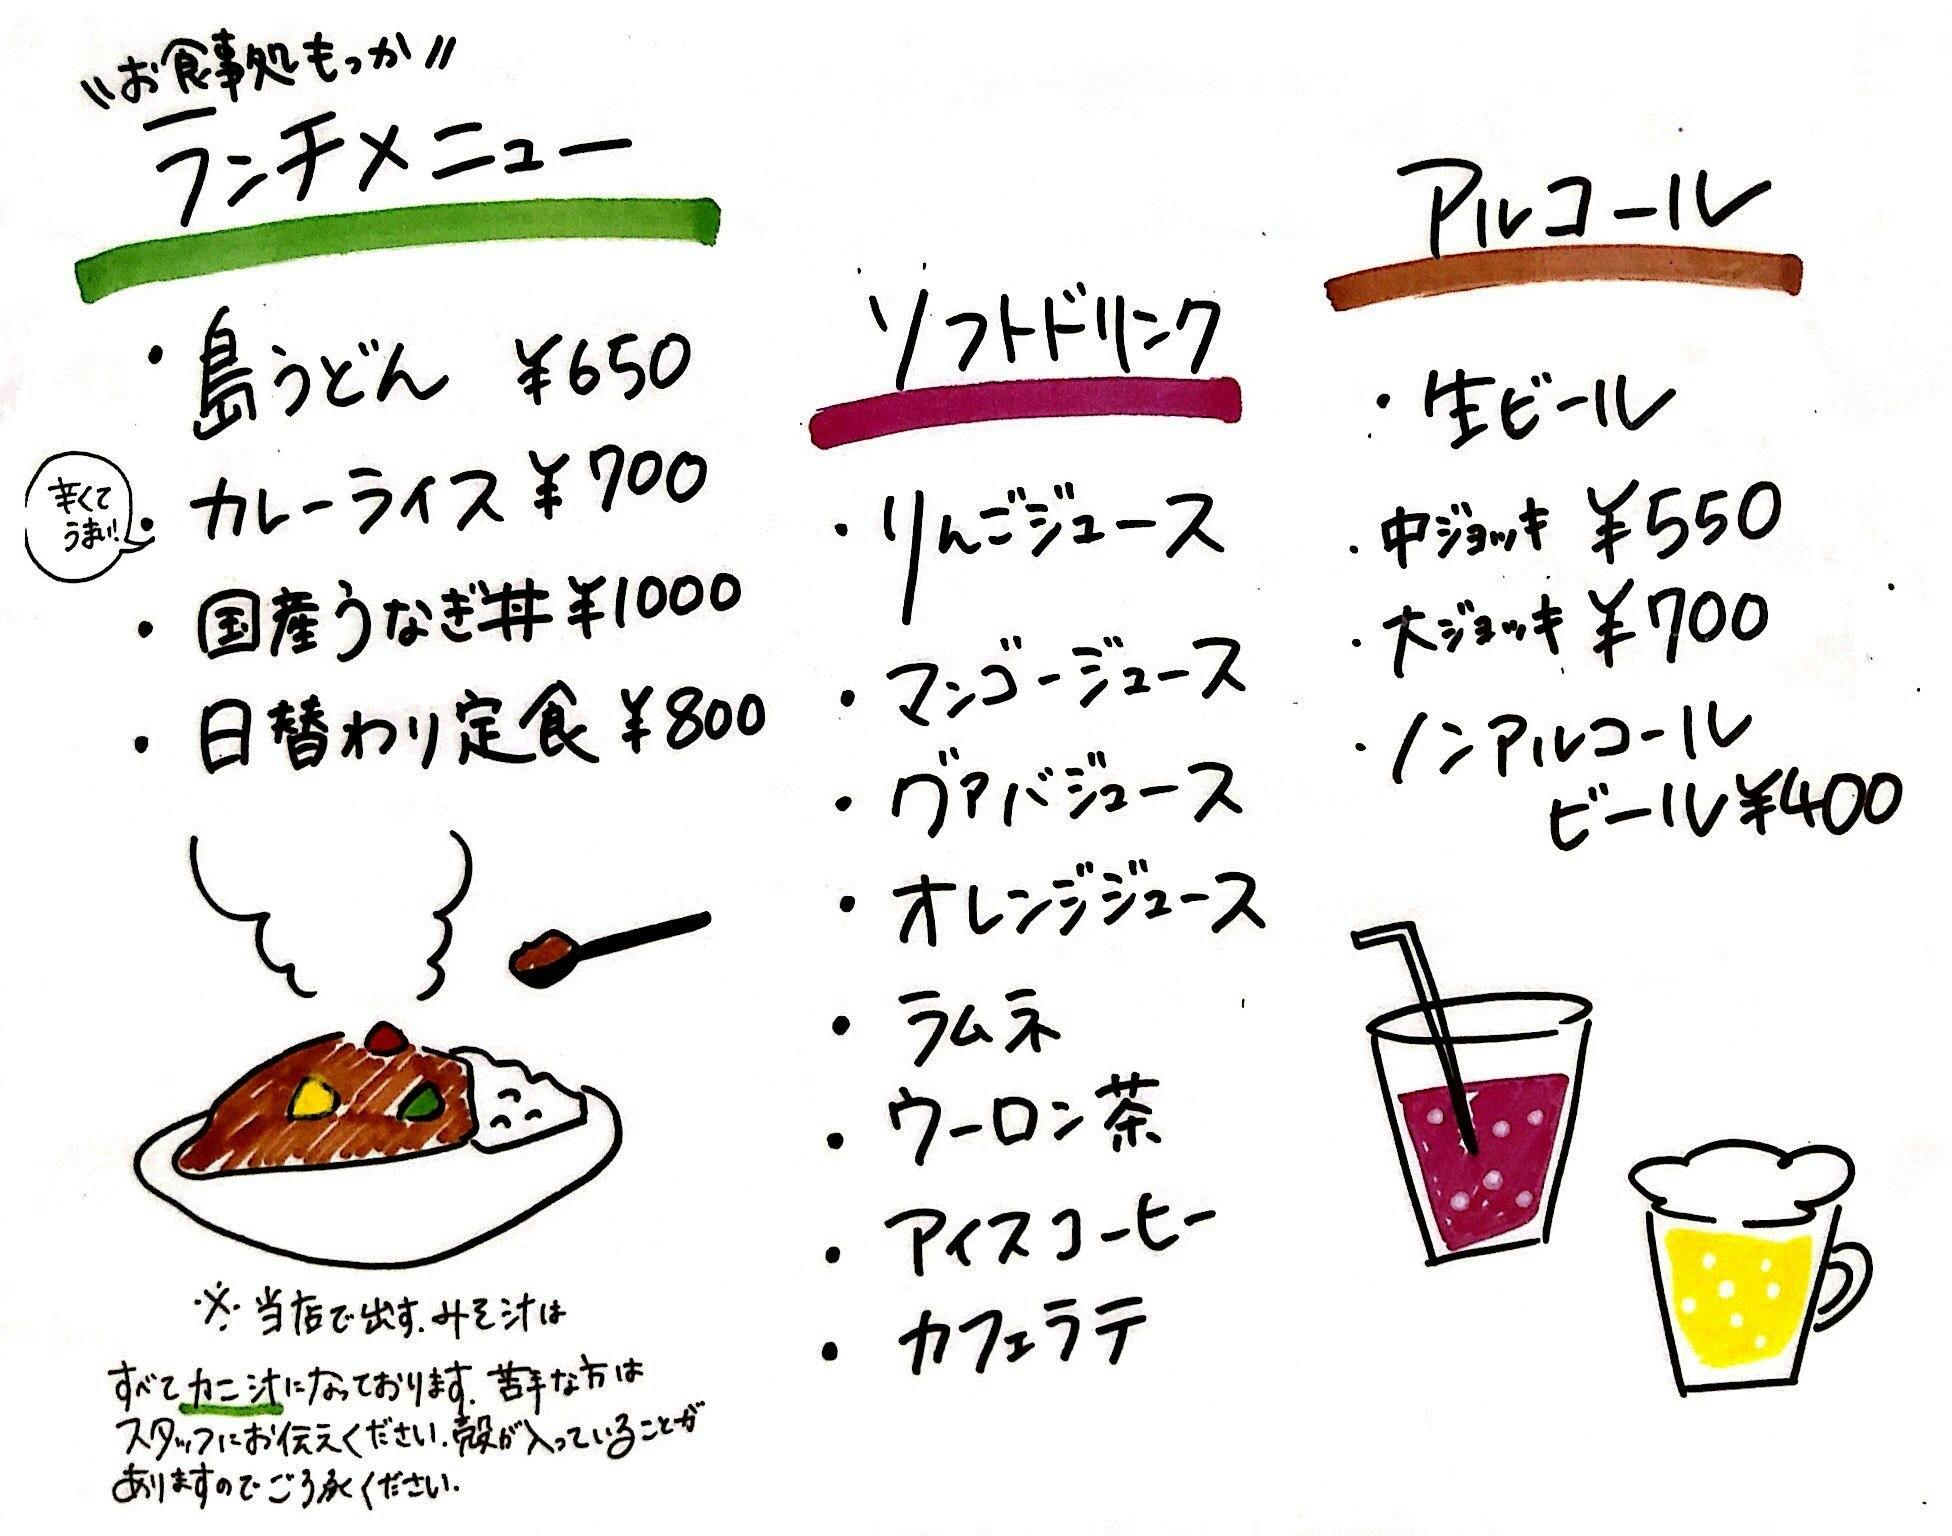 お食事処もっか
ランチメニュー
・島うどん ¥650
辛くて
うまい!
・カレーライス ¥700
・国産うなぎ丼 ¥1000
・日替わり定食 ¥800
※当店で出す、みそ汁は
すべてカニ汁になっております。苦手な方は
スタッフにお伝えください。殻が入っていることが
ありますのでご了承ください。
ソフトドリンク
・りんごジュース
・マンゴージュース
・グァバジュース
・オレンジジュース
・ラムネ
・ウーロン茶
・アイスコーヒー
・カフェラテ
アルコール
・生ビール
・中ジョッキ ¥550
・大ジョッキ ¥700
・ノンアルコール
ビール ¥400